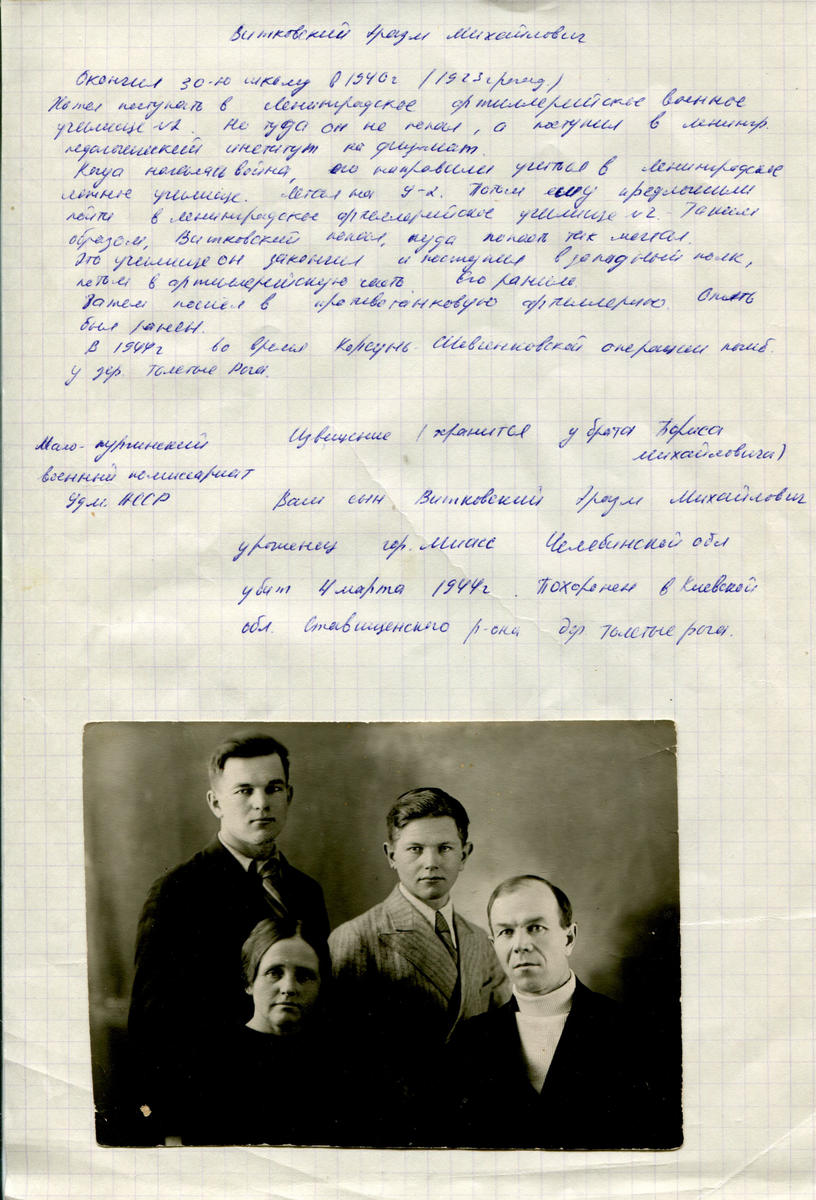 Витковский Аразм Михайлович
Окончил 30-ю школу в 1940г (1923 г рожд.)
Хотел поступать в Ленинградское артиллерийское военное
училище №2. Но туда он не попал, а поступил в Ленингр.
педагогический институт на физмат.
Когда началась война, его направили учиться в Ленинградское
летное училище. Летал на У-2. Потом ему предложили
пойти в Ленинградское артиллерийское училище №2. Таким
образом, Витковский попал, куда попасть так мечтал.
Это училище он закончил и поступил в западный полк,
потом в артиллерийскую часть. Его ранило.
Затем попал в противотанковую артиллерию. Опять
был ранен.
В 1944г во время Корсунь-Шевченковской операции погиб.
у дер. Толстые Рога.
Мало-пургинский
военный комиссариат
Удм. АССР
Извещение (хранится у брата Бориса
Михайловича)
Ваш сын Витковский Аразм Михайлович
уроженец гор. Миасс Челябинской обл
убит 4 марта 1944г. Похоронен в Киевской
обл. Ставищенского р-она дер Толстые рога.